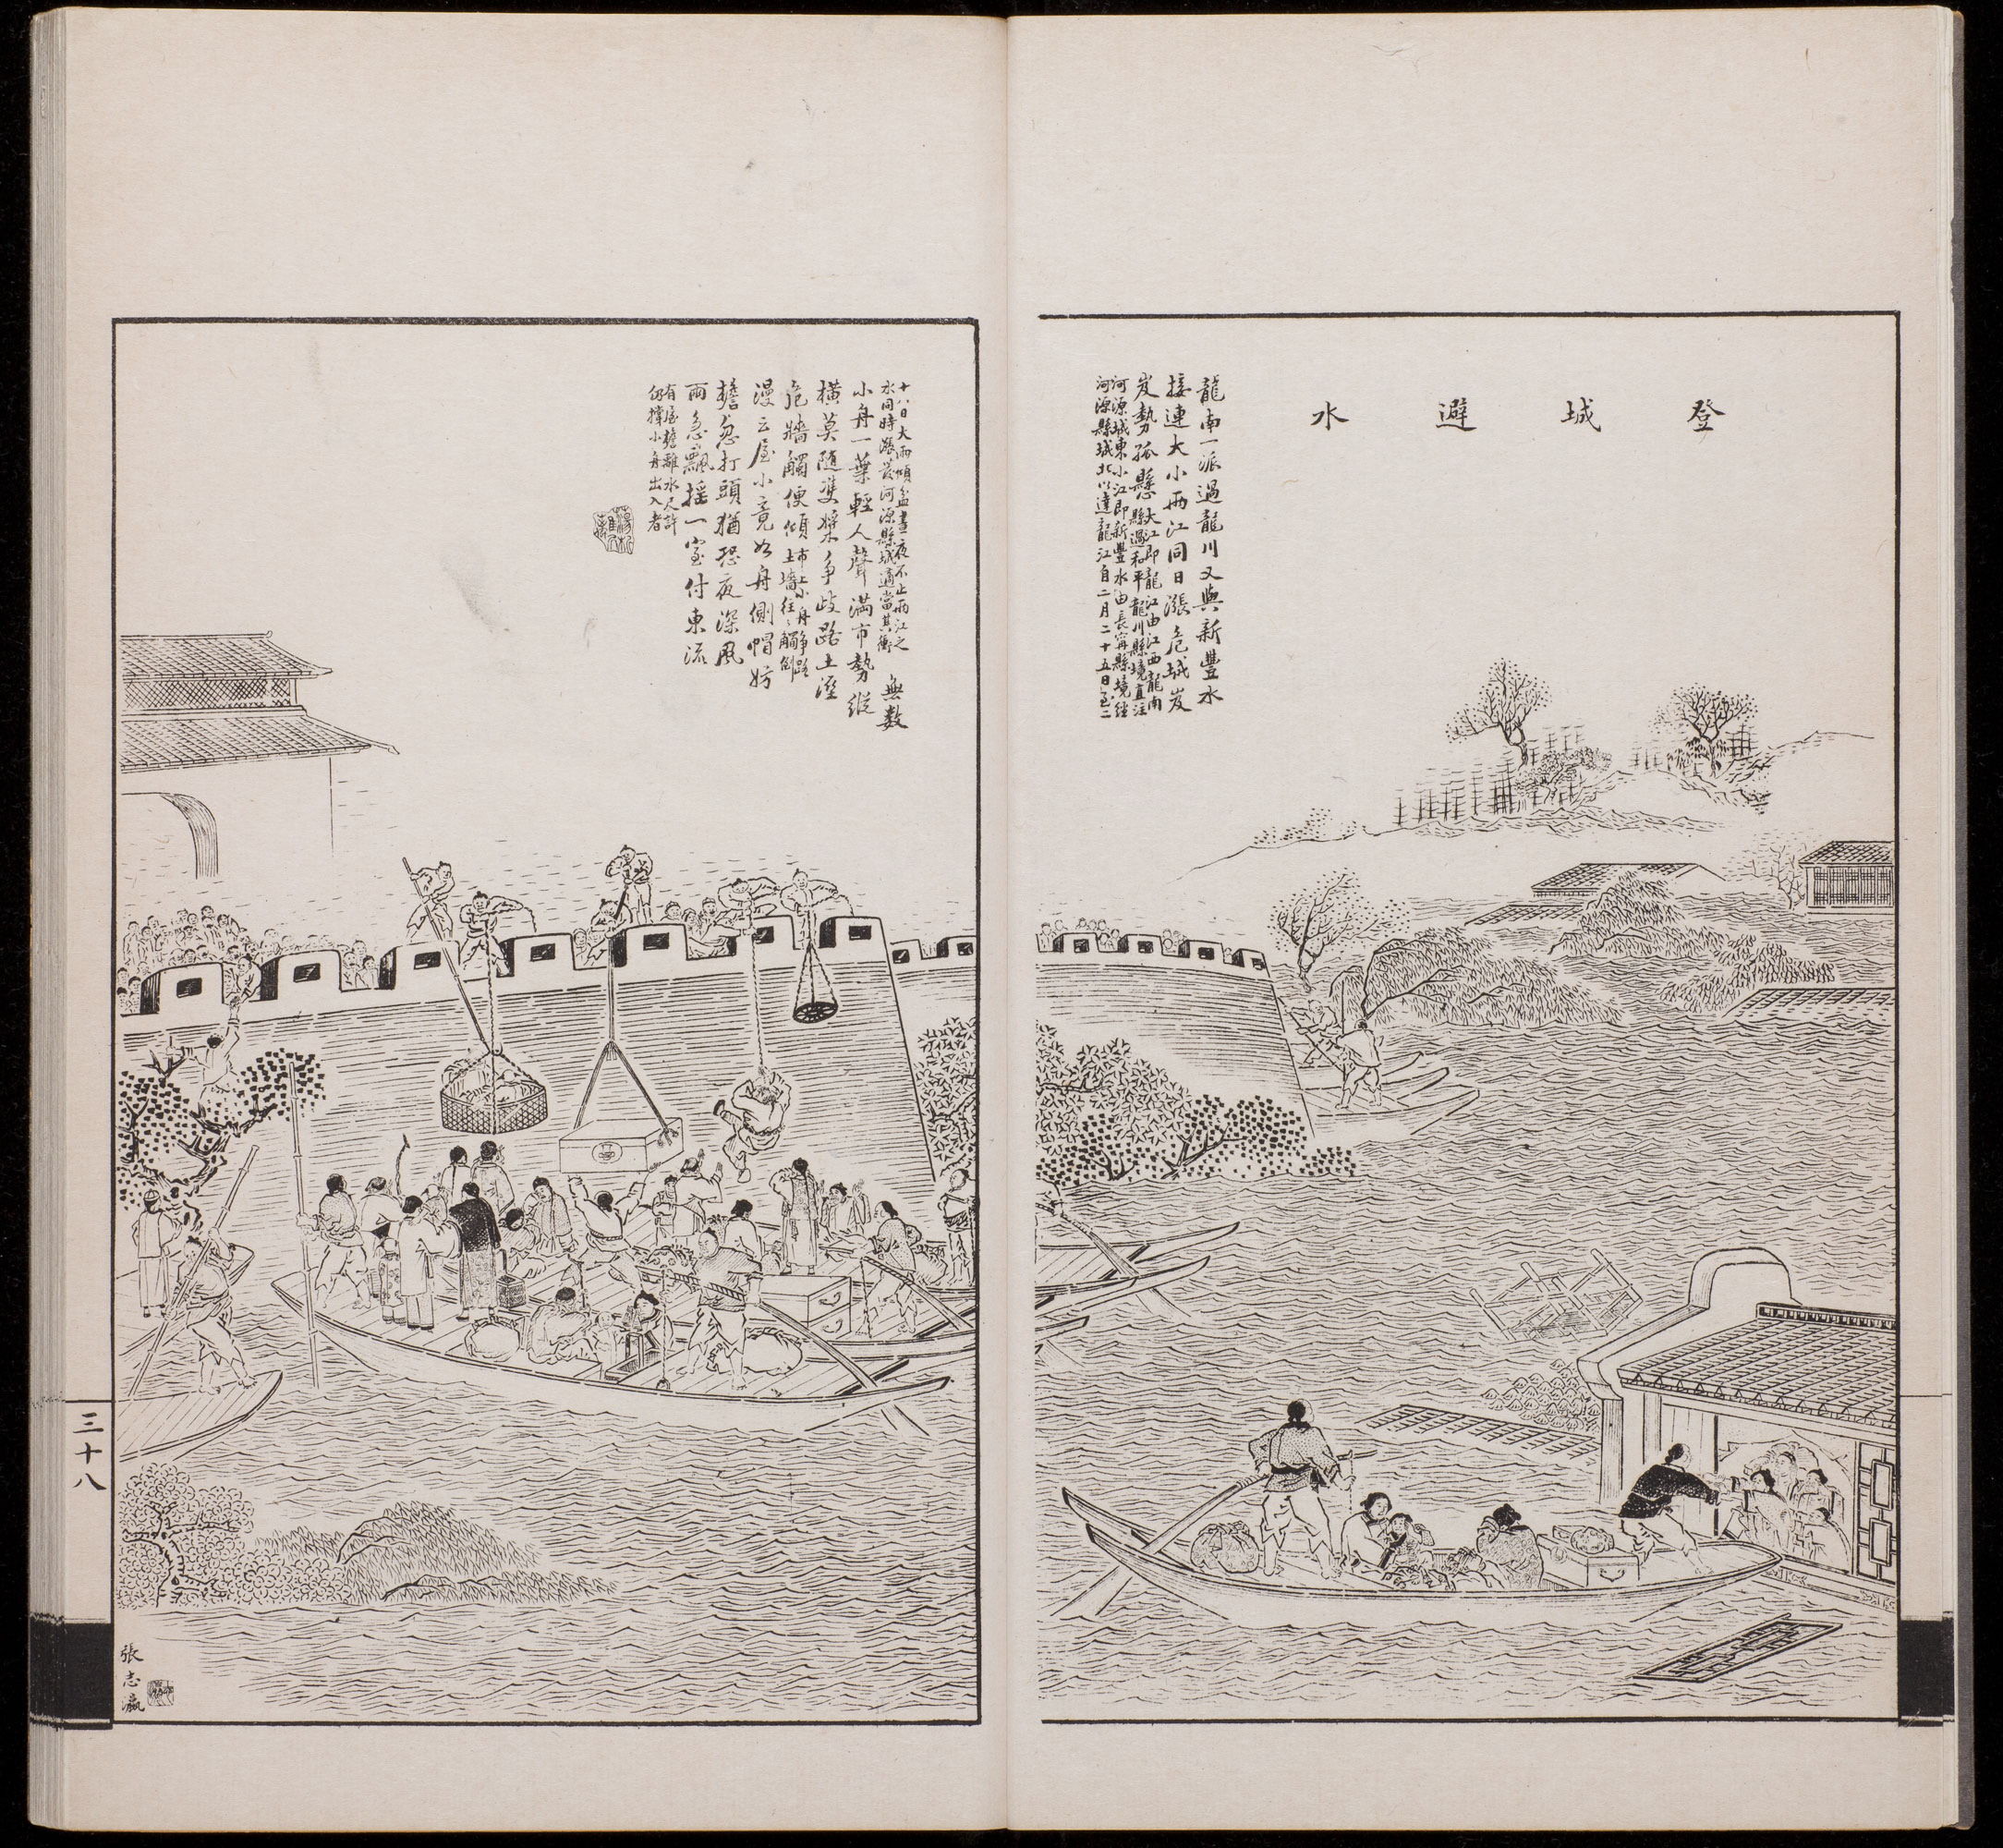 登城避水
龍南一派過龍川又與新豐水
接連大小兩江同日漲危城岌
岌勢孤懸大江即龍江由江西龍南
縣過和平龍川縣境直注
河源城東小江即新豐水由長甯縣境經
河源縣城北以達龍江自二月二十五日至二
十八日大雨傾盆晝夜不止兩江之
水同時漲發河源縣城適當其衝
無數
小舟一葉輕人聲滿市勢縱
橫莫隨雙槳爭歧路土溼
危牆觸便傾市上小舟爭路
土墻往々觸倒
漫云屋小竟如舟側帽妨
檐怱打頭猶恐夜深風
雨急飄搖一室付東流
有屋檐離水尺許
仍撐小舟出入者
三十八
張志瀛